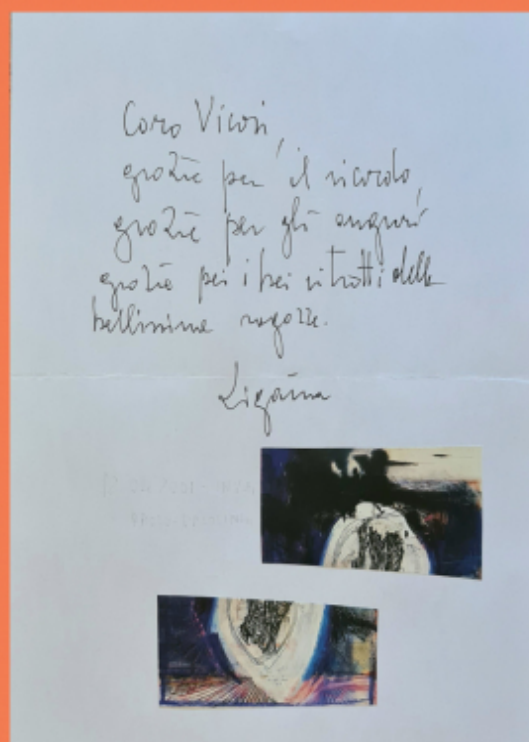 Caro Vicosi,
grazie per il ricordo,
grazie per gli auguri
grazie pei i bei ritratti delle
bellissime ragazze.
Ligaina